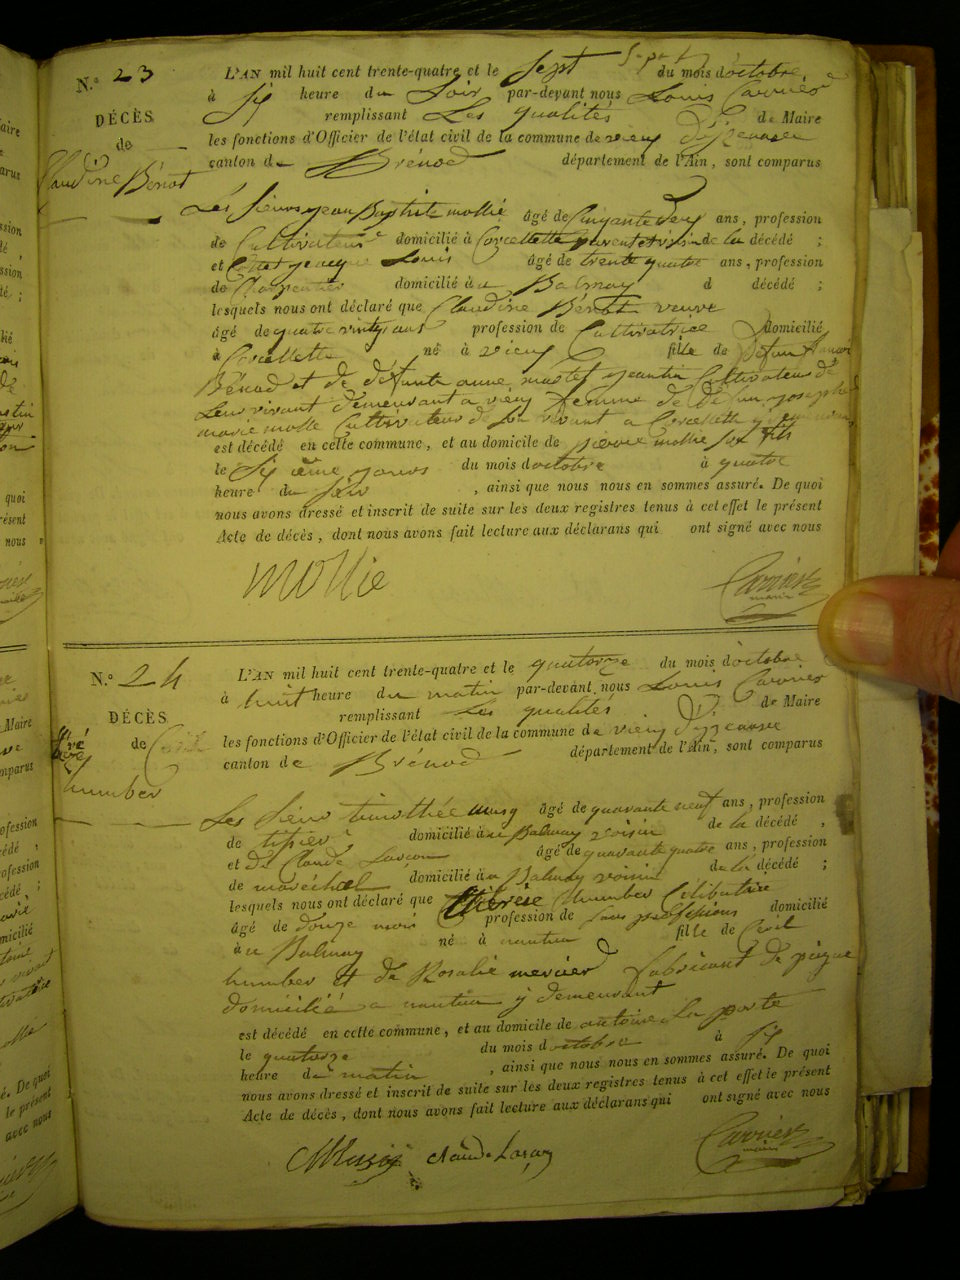 N.° 23
DÉCÈS
de
Claudine Bénot
L'AN mil huit cent trente-quatre et le sept du mois d'octobre
à six heure du soir par-devant nous Louis Carrier
remplissant les qualités de Maire
les fonctions d'Officier de l'état civil de la commune de vieu d'izenave
canton de Brénod département de l'Ain, sont comparus
Les sieurs jean Baptiste mollie âgé de cinquante ans, profession
de Cultivateur domicilié à Corcellette parent et voisin de la décédé ;
et jacque Louis âgé de trente quatre ans, profession
de Charpentier domicilié au Balmay d décédé ;
lesquels nous ont déclaré que Claudine Bénot veuve
âgé de quatre vingt ans profession de Cultivatrice domicilié
à Corcellette né à vieu fille de défunt
Bénod et de défunte anne jeantin Cultivateur de
leur vivant demeurant a vieu femme de défun joseph
marie mollie Cultivateur de son vivant a Corcellette y
est décédé en cette commune, et au domicile de pierre mollie son fils
le six ième jours du mois d'octobre à quatre
heure du soir , ainsi que nous nous en sommes assuré. De quoi
nous avons dressé et inscrit de suite sur les deux registres tenus à cet effet le présent
Acte de décès, dont nous avons fait lecture aux déclarans qui ont signé avec nous
mollie
Carrier
maire
N.° 24
DÉCÈS
de
humber
L'AN mil huit cent trente-quatre et le quatorze du mois d'octobre
à huit heure du matin par-devant nous Louis Carrier
remplissant les qualités de Maire
les fonctions d'Officier de l'état civil de la commune de vieu d'izenave
canton de Brénod département de l'Ain, sont comparus
Les sieur timothée âgé de quarante neuf ans, profession
de tissier domicilié au Balmay voisin de la décédé ,
et de Claude Larçon âgé de quarante quatre ans, profession
de maréchal domicilié au Balmay voisin de la décédé ;
lesquels nous ont déclaré que thérèse humber Célibataire
âgé de douze mois profession de sans profession domicilié
à u Balmay né à nantua fille de
humber et de Rosalie mercier fabricant de peigne
domicilié a nantua y demeurant
est décédé en cette commune, et au domicile de antoine la porte
le quatorze du mois d'octobre à six
heure du matin , ainsi que nous nous en sommes assuré. De quoi
nous avons dressé et inscrit de suite sur les deux registres tenus à cet effet le présent
Acte de décès, dont nous avons fait lecture aux déclarans qui ont signé avec nous
claude Larçon
Carrier
maire